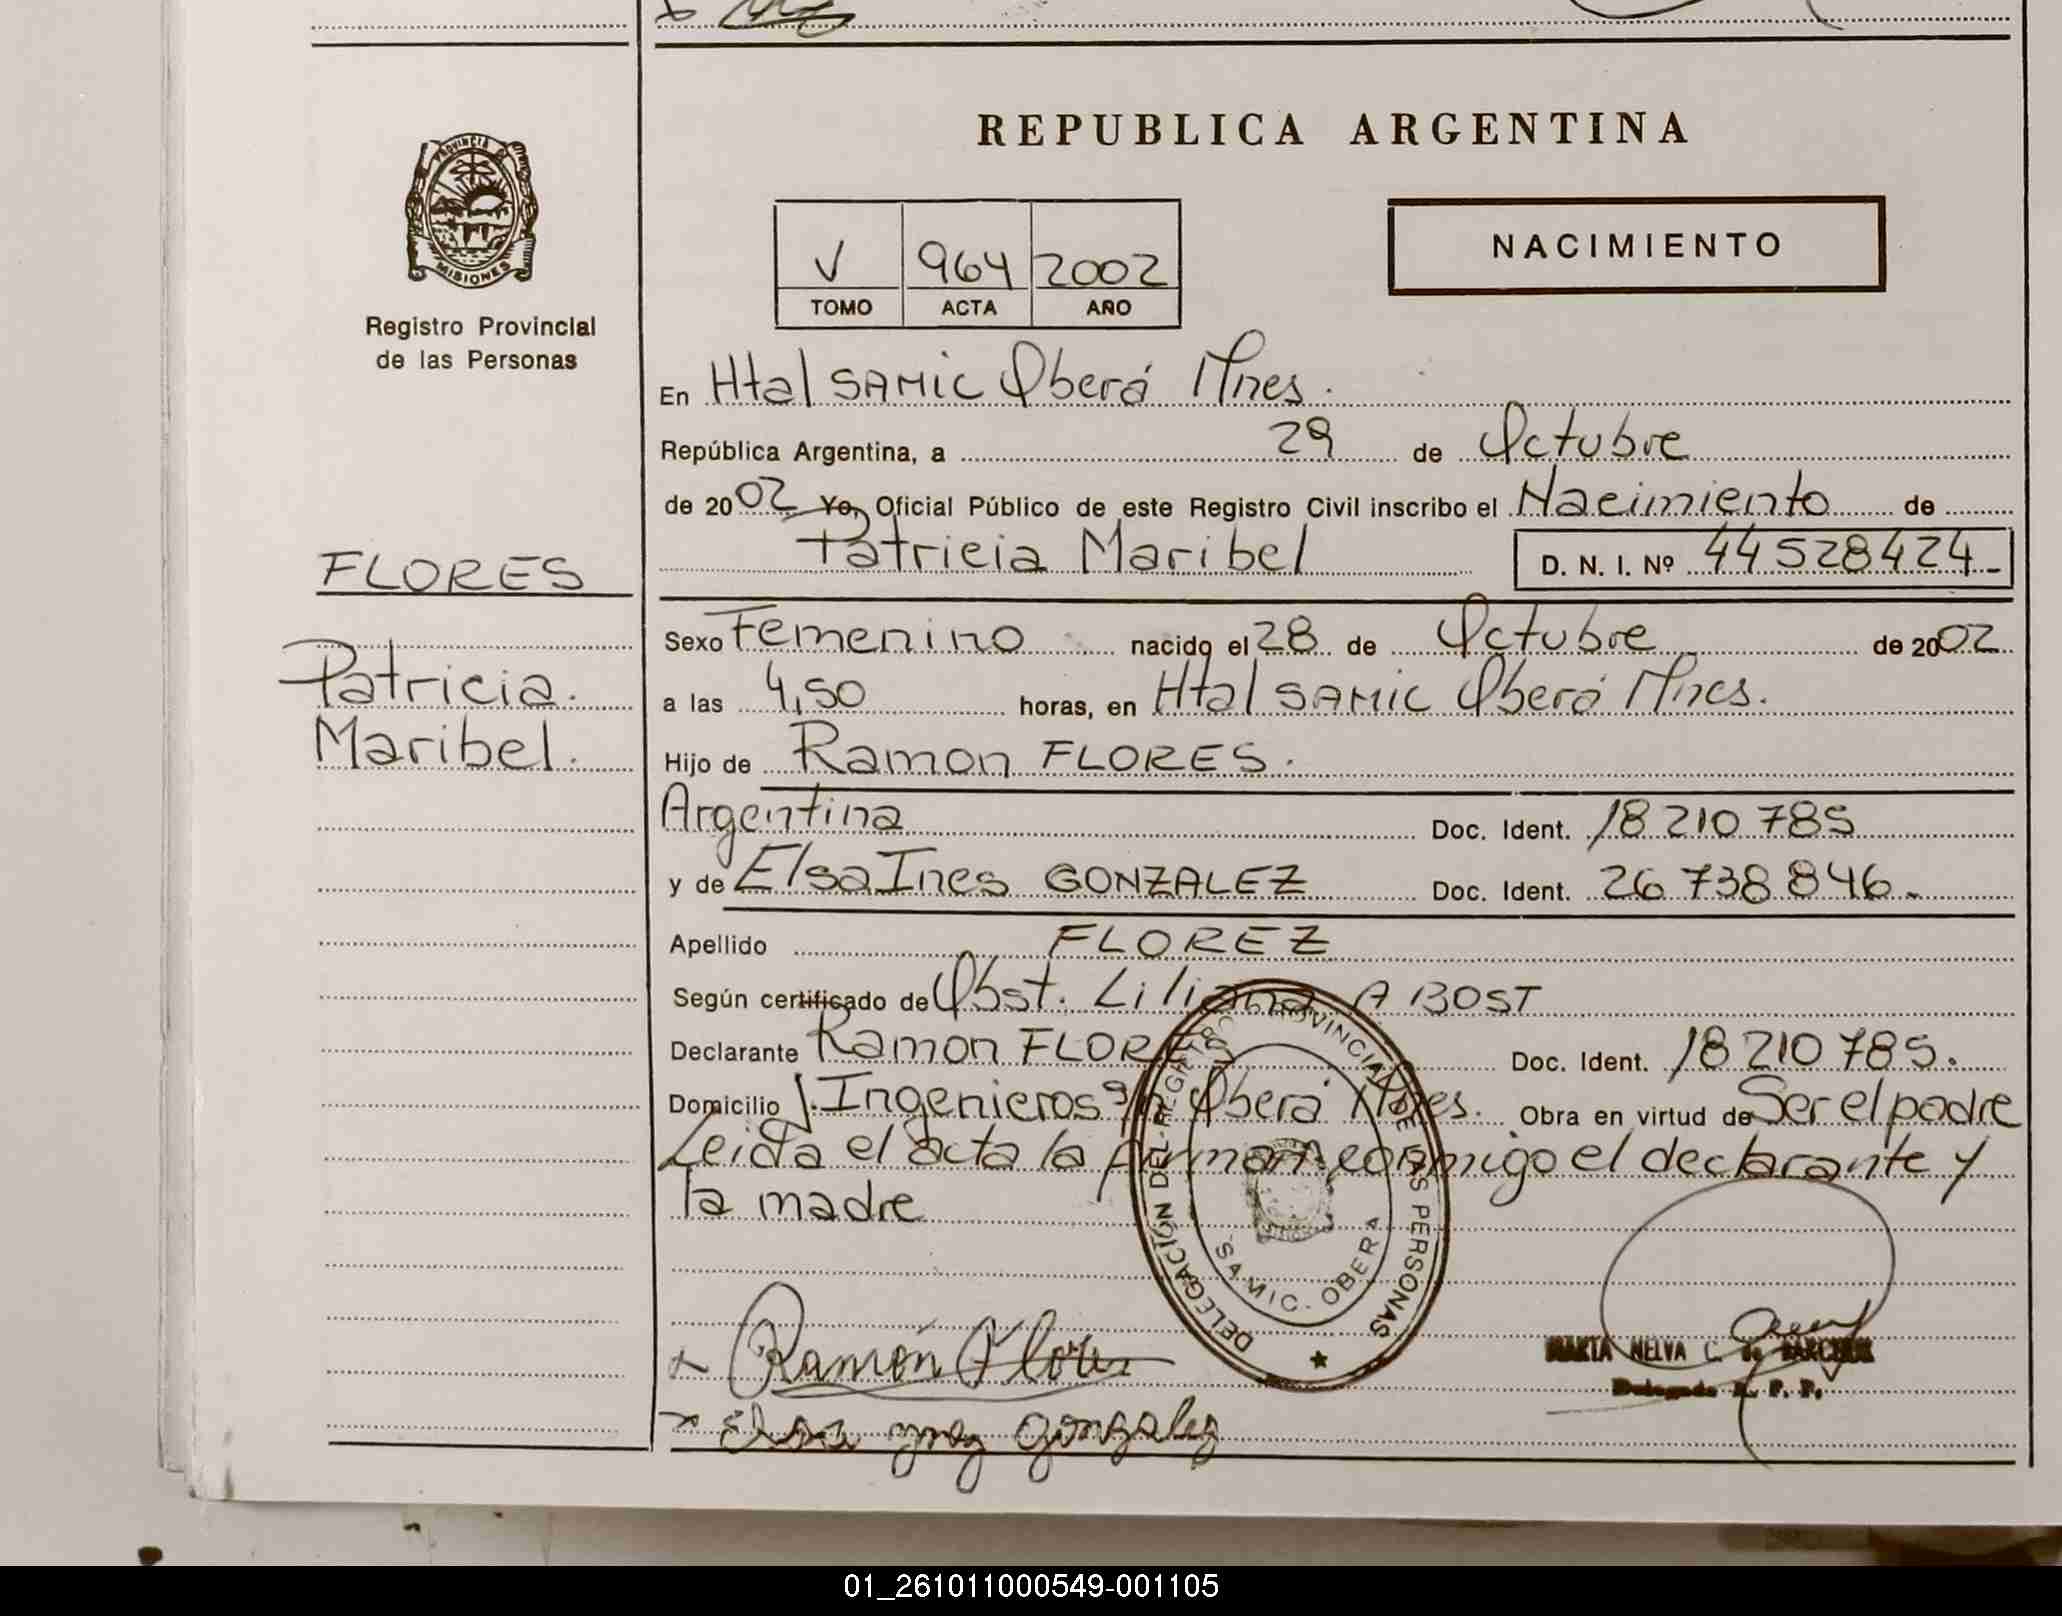 REPUBLICA ARGENTINA
PROVINCIA DE
MISIONES
Registro Provincial
de las Personas
V 964 2002
TOMO ACTA AÑO
NACIMIENTO
En Htal SAMIC Oberá Mnes.
República Argentina, a 29 de Octubre
de 2002 Yo, Oficial Público de este Registro Civil inscribo el Nacimiento de
Patricia Maribel D. N. I. Nº 44528424
FLORES
Patricia.
Maribel.
Sexo Femenino nacido el 28 de Octubre de 2002
a las 4,50 horas, en Htal SAMIC Oberá Mnes.
Hijo de Ramon FLORES.
Argentina Doc. Ident. 18 210 785
y de Elsa Ines GONZALEZ Doc. Ident. 26 738 846.-
Apellido FLOREZ
Según certificado de Obst. Liliana A BOST
Declarante Ramon FLORES Doc. Ident. 18 210 785.
Domicilio J. Ingenieros s/n Oberá Mnes. Obra en virtud de Ser el padre
Leida el acta la firman conmigo el declarante y
la madre
DELEGACIÓN DEL REGISTRO PROVINCIAL DE LAS PERSONAS
SAMIC. OBERA
x Ramón Flores
MARTA NELVA C. de
Delegada R. P. P.
x Elsa ynez gonzalez
01_261011000549-001105